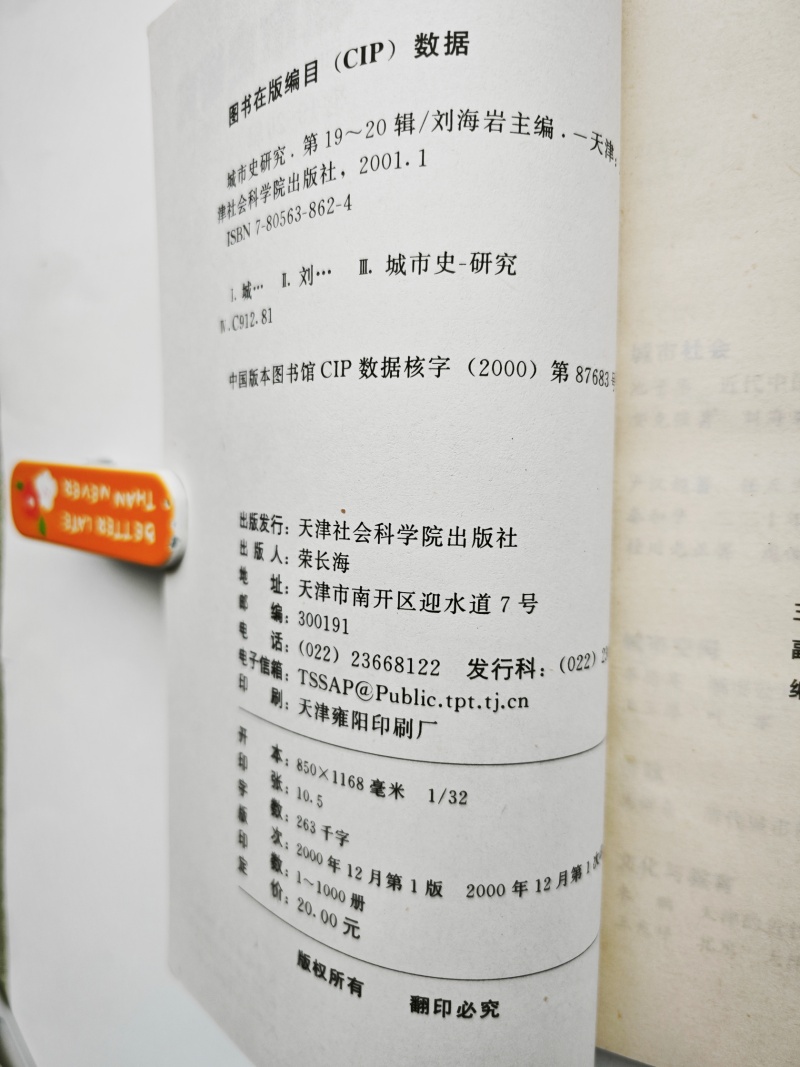 图书在版编目（CIP）数据
城市史研究．第19～20 辑/刘海岩主编．－天津：
津社会科学院出版社，2001.1
ISBN 7-80563-862-4
Ⅰ.城… Ⅱ.刘… Ⅲ.城市史-研究
Ⅳ.C912.81
中国版本图书馆 CIP 数据核字（2000）第 87683号
出版发行：天津社会科学院出版社
出 版 人：荣长海
地 址：天津市南开区迎水道 7 号
邮 编：300191
电 话：（022）23668122 发行科：（022）
电子信箱：TSSAP@Public.tpt.tj.cn
印 刷：天津雍阳印刷厂
开 本：850×1168 毫米 1/32
印 张：10.5
字 数：263 千字
版 次：2000 年 12 月第 1 版 2000 年 12 月第 1 次
印 数：1～1000 册
定 价：20.00 元
版权所有 翻印必究
BETTER LATE
THAN NEVER
城市社会
主
副
编